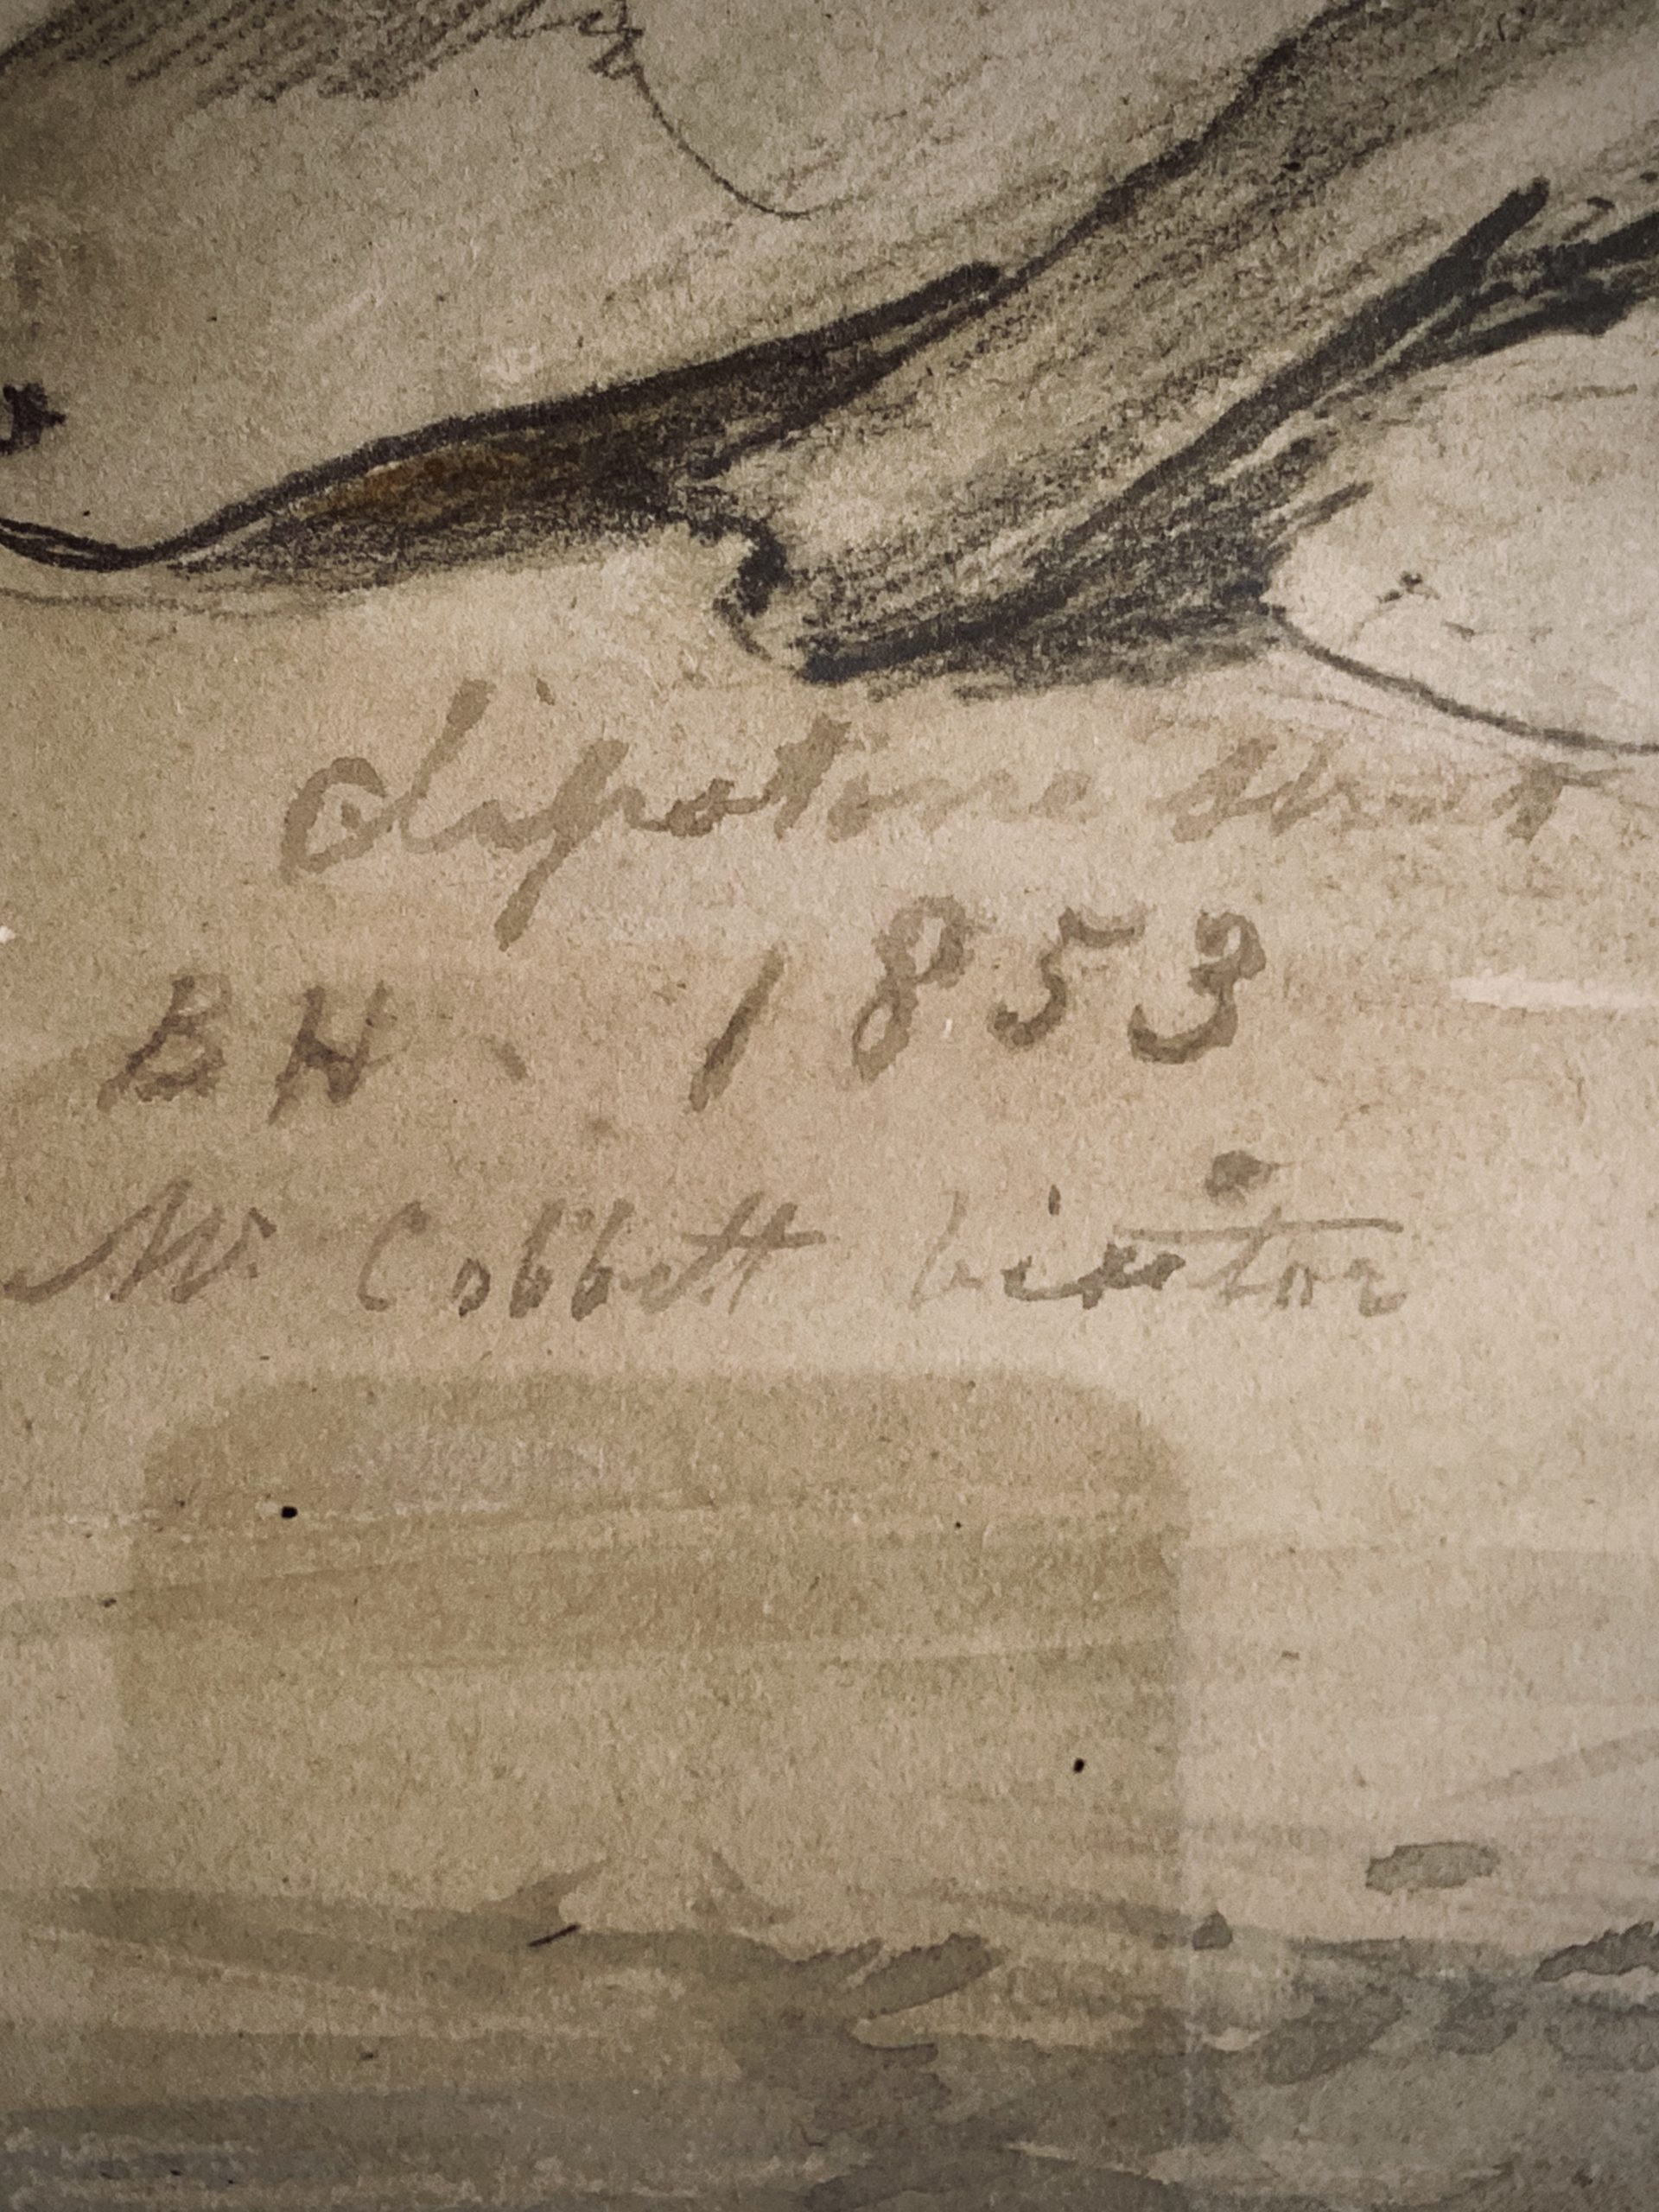 Lipstone Street
BH. 1853
Mr. Cobbett